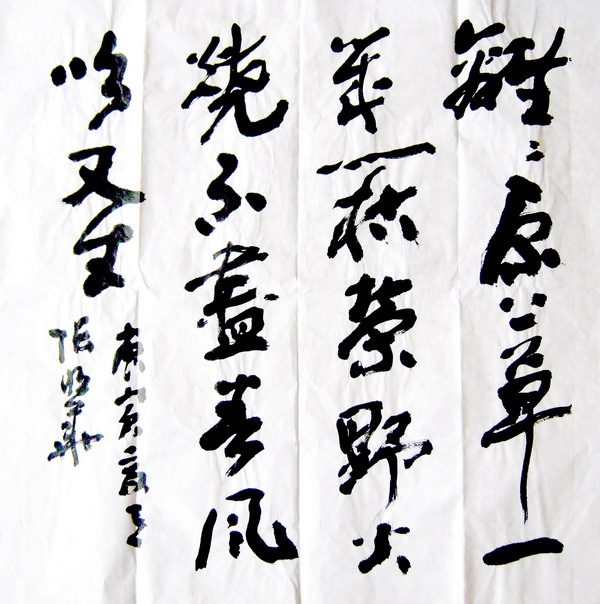 離〻原上草一
歲一枯榮野火
燒不盡春風
吹又生